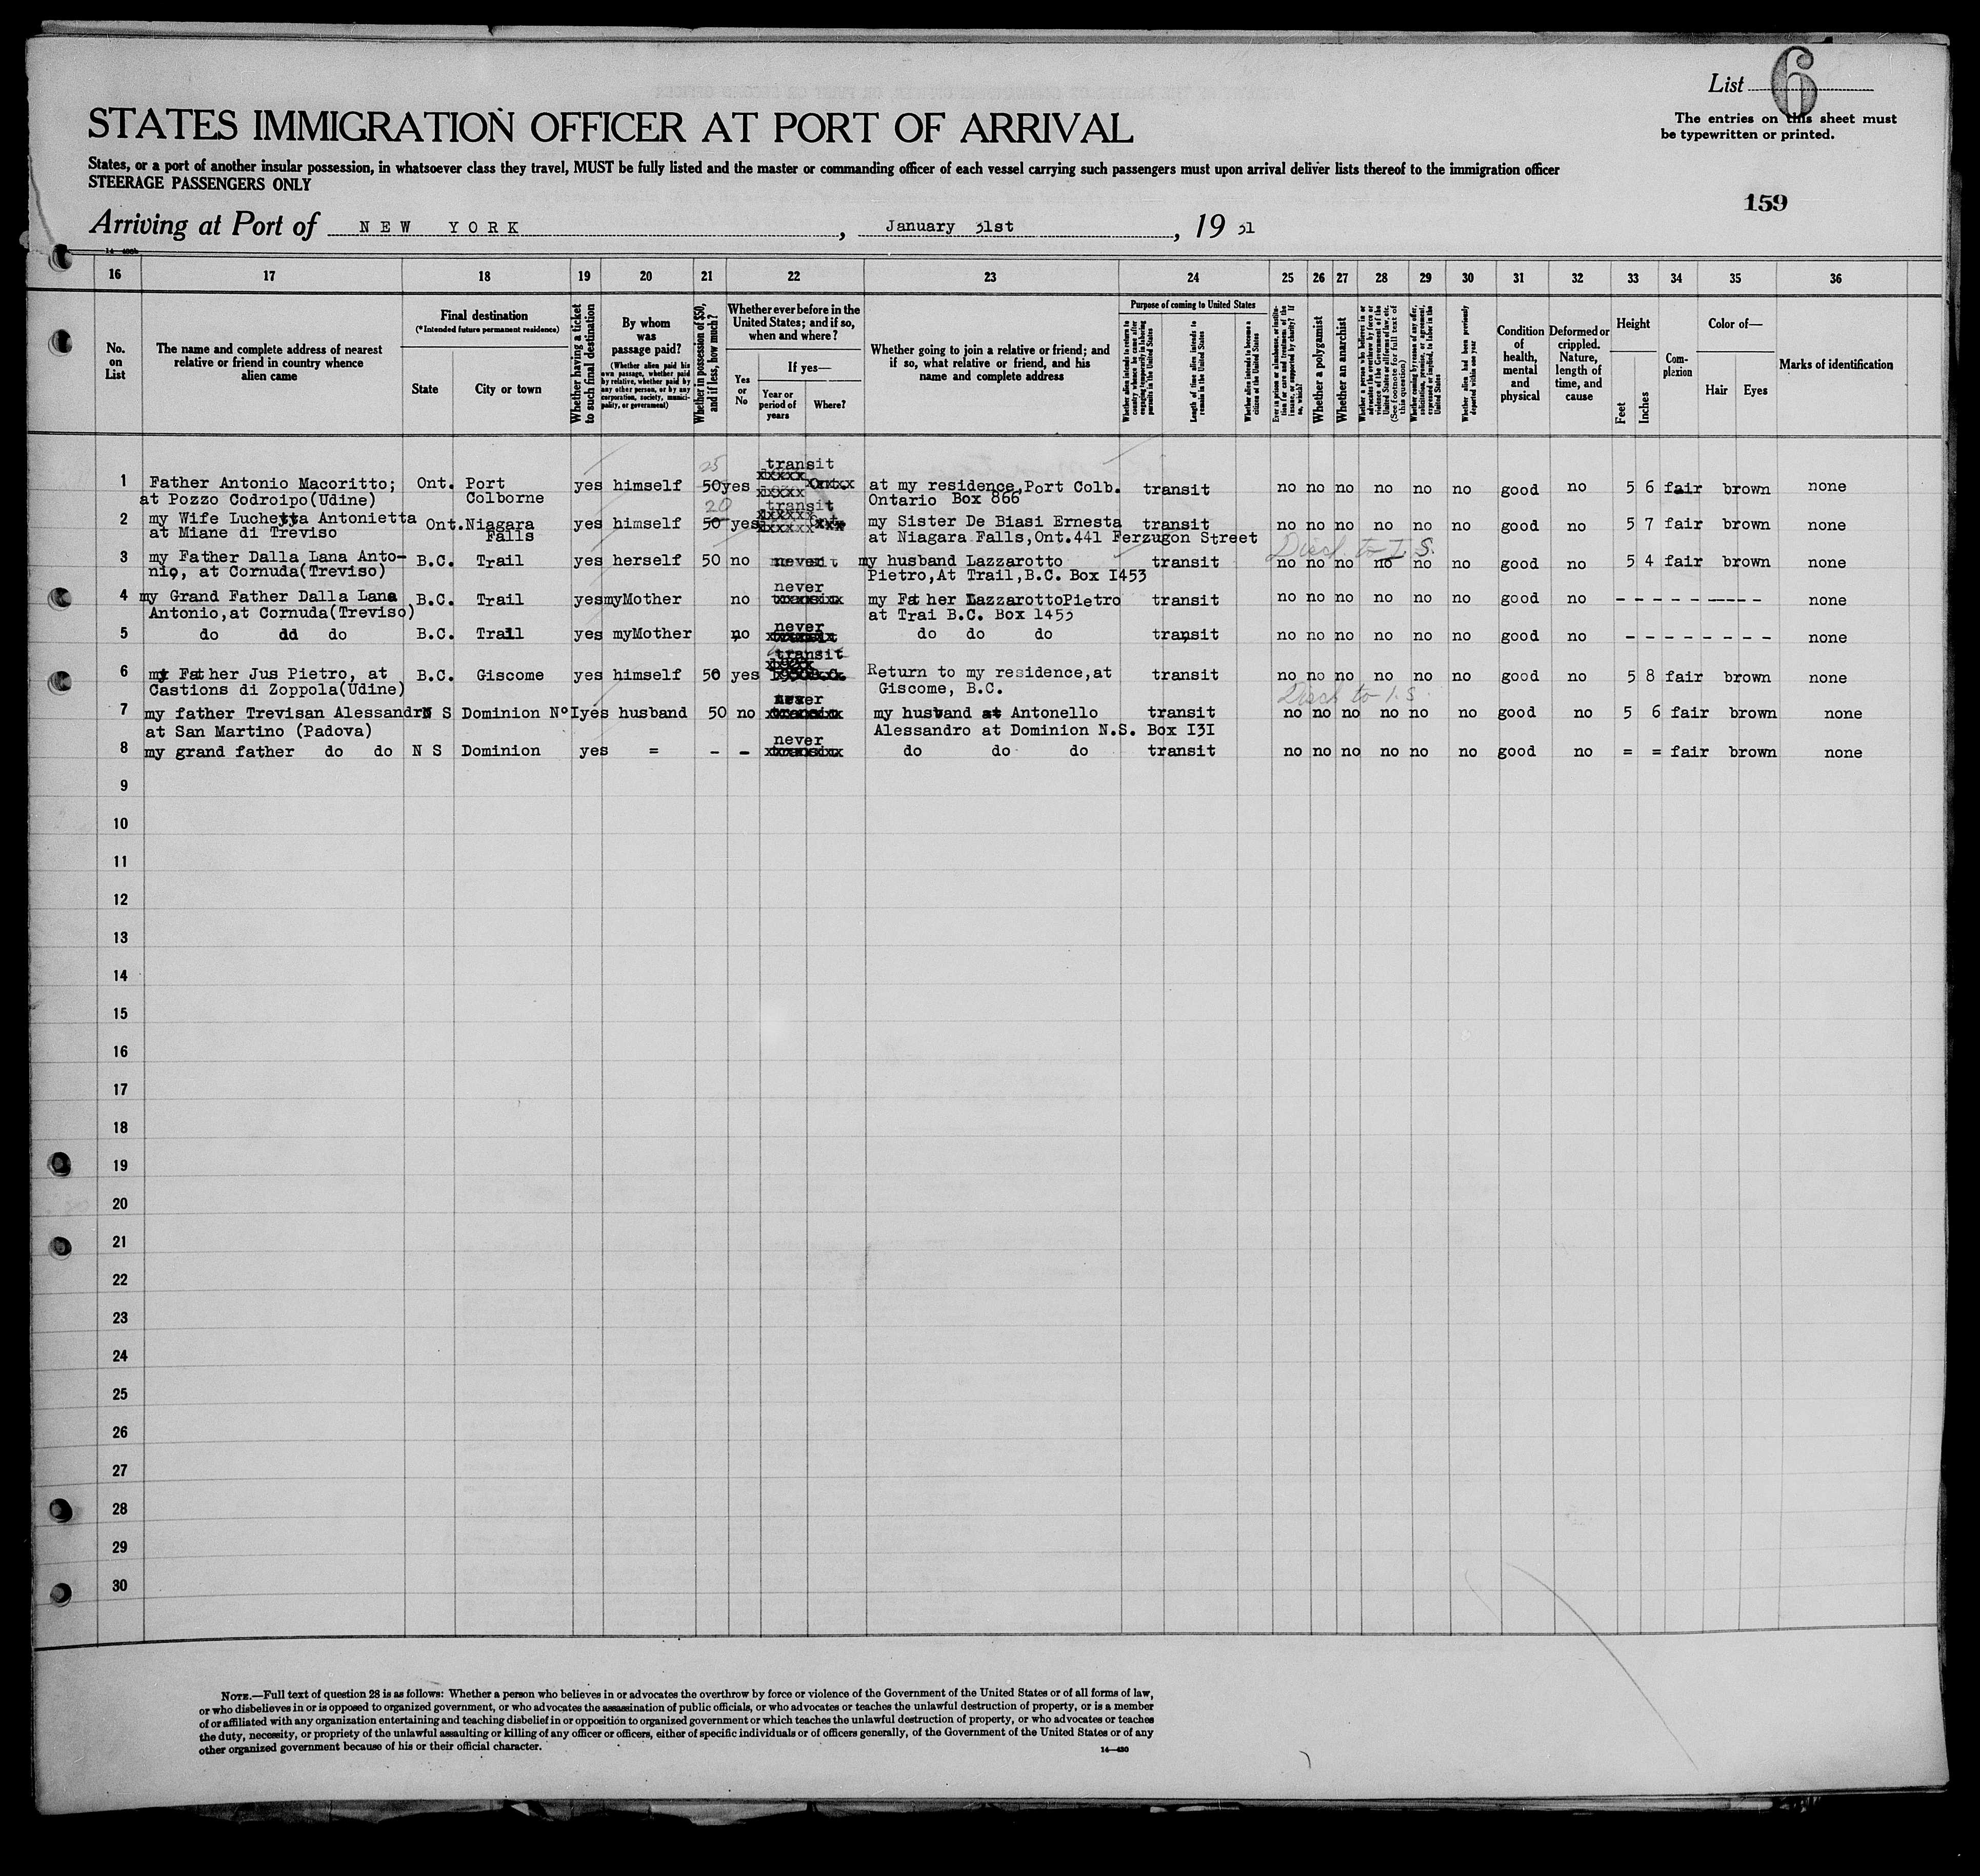 List 6
The entries on this sheet must
be typewritten or printed.
STATES IMMIGRATION OFFICER AT PORT OF ARRIVAL
States, or a port of another insular possession, in whatsoever class they travel, MUST be fully listed and the master or commanding officer of each vessel carrying such passengers must upon arrival deliver lists thereof to the immigration officer
STEERAGE PASSENGERS ONLY
159
Arriving at Port of NEW YORK, January 31st, 19 31
16 17 18 19 20 21 22 23 24 25 26 27 28 29 30 31 32 33 34 35 36
No. on List
The name and complete address of nearest relative or friend in country whence alien came
Final destination
(*Intended future permanent residence)
State
City or town
Whether having a ticket to such final destination
By whom was passage paid?
(Whether alien paid his own passage, whether paid by relative, whether paid by any other person, or by any corporation, society, municipality, or government)
Whether in possession of $50, and if less, how much?
Whether ever before in the United States; and if so, when and where?
Yes or No
If yes—
Year or period of years
Where?
Whether going to join a relative or friend; and if so, what relative or friend, and his name and complete address
Purpose of coming to United States
Whether alien intends to return to country whence he came after engaging temporarily in laboring pursuits in the United States
Length of time alien intends to remain in the United States
Whether alien intends to become a citizen of the United States
Ever in prison or almshouse, or institution for care and treatment of the insane, or supported by charity? If so, which?
Whether a polygamist
Whether an anarchist
(See footnote for full text of this question)
Whether alien had been previously deported within one year
Condition of health, mental and physical
Deformed or crippled. Nature, length of time, and cause
Height
Feet
Inches
Complexion
Color of—
Hair
Eyes
Marks of identification
25 transit
1 Father Antonio Macoritto; Ont. Port yes himself 50 yes at my residence,Port Colb. transit no no no no no no good no 5 6 fair brown none
at Pozzo Codroipo(Udine) Colborne Ontario Box 866
20 transit
2 my Wife Luchetta Antonietta Ont. Niagara yes himself 50 yes my Sister De Biasi Ernesta transit no no no no no no good no 5 7 fair brown none
at Miane di Treviso Falls at Niagara Falls,Ont.441 Ferzugon Street
Disch. to I. S.
3 my Father Dalla Lana Anto- B.C. Trail yes herself 50 no my husband Lazzarotto transit no no no no no no good no 5 4 fair brown none
nio, at Cornuda(Treviso) Pietro,At Trail,B.C. Box I453
never
4 my Grand Father Dalla Lana B.C. Trail yes myMother no my Fat her LazzarottoPietro transit no no no no no no good no - - - - - - - - - none
Antonio,at Cornuda(Treviso) at Trai B.C. Box 1453
never
5 do dd do B.C. Trail yes myMother no do do do transit no no no no no no good no - - - - - - - - none
transit
6 my Fat her Jus Pietro, at B.C. Giscome yes himself 50 yes Return to my residence,at transit no no no no no no good no 5 8 fair brown none
Castions di Zoppola(Udine) Giscome, B.C.
Disch to I. S.
never
7 my father Trevisan Alessandro N S Dominion N°I yes husband 50 no my husband at Antonello transit no no no no no no good no 5 6 fair brown none
at San Martino (Padova) Alessandro at Dominion N.S. Box I3I
never
8 my grand father do do N S Dominion yes = - - do do do transit no no no no no no good no = = fair brown none
9
10
11
12
13
14
15
16
17
18
19
20
21
22
23
24
25
26
27
28
29
30
NOTE.—Full text of question 28 is as follows: Whether a person who believes in or advocates the overthrow by force or violence of the Government of the United States or of all forms of law,
or who disbelieves in or is opposed to organized government, or who advocates the assassination of public officials, or who advocates or teaches the unlawful destruction of property, or is a member
of or affiliated with any organization entertaining and teaching disbelief in or opposition to organized government or which teaches the unlawful destruction of property, or who advocates or teaches
the duty, necessity, or propriety of the unlawful assaulting or killing of any officer or officers, either of specific individuals or of officers generally, of the Government of the United States or of any
other organized government because of his or their official character.
14—430